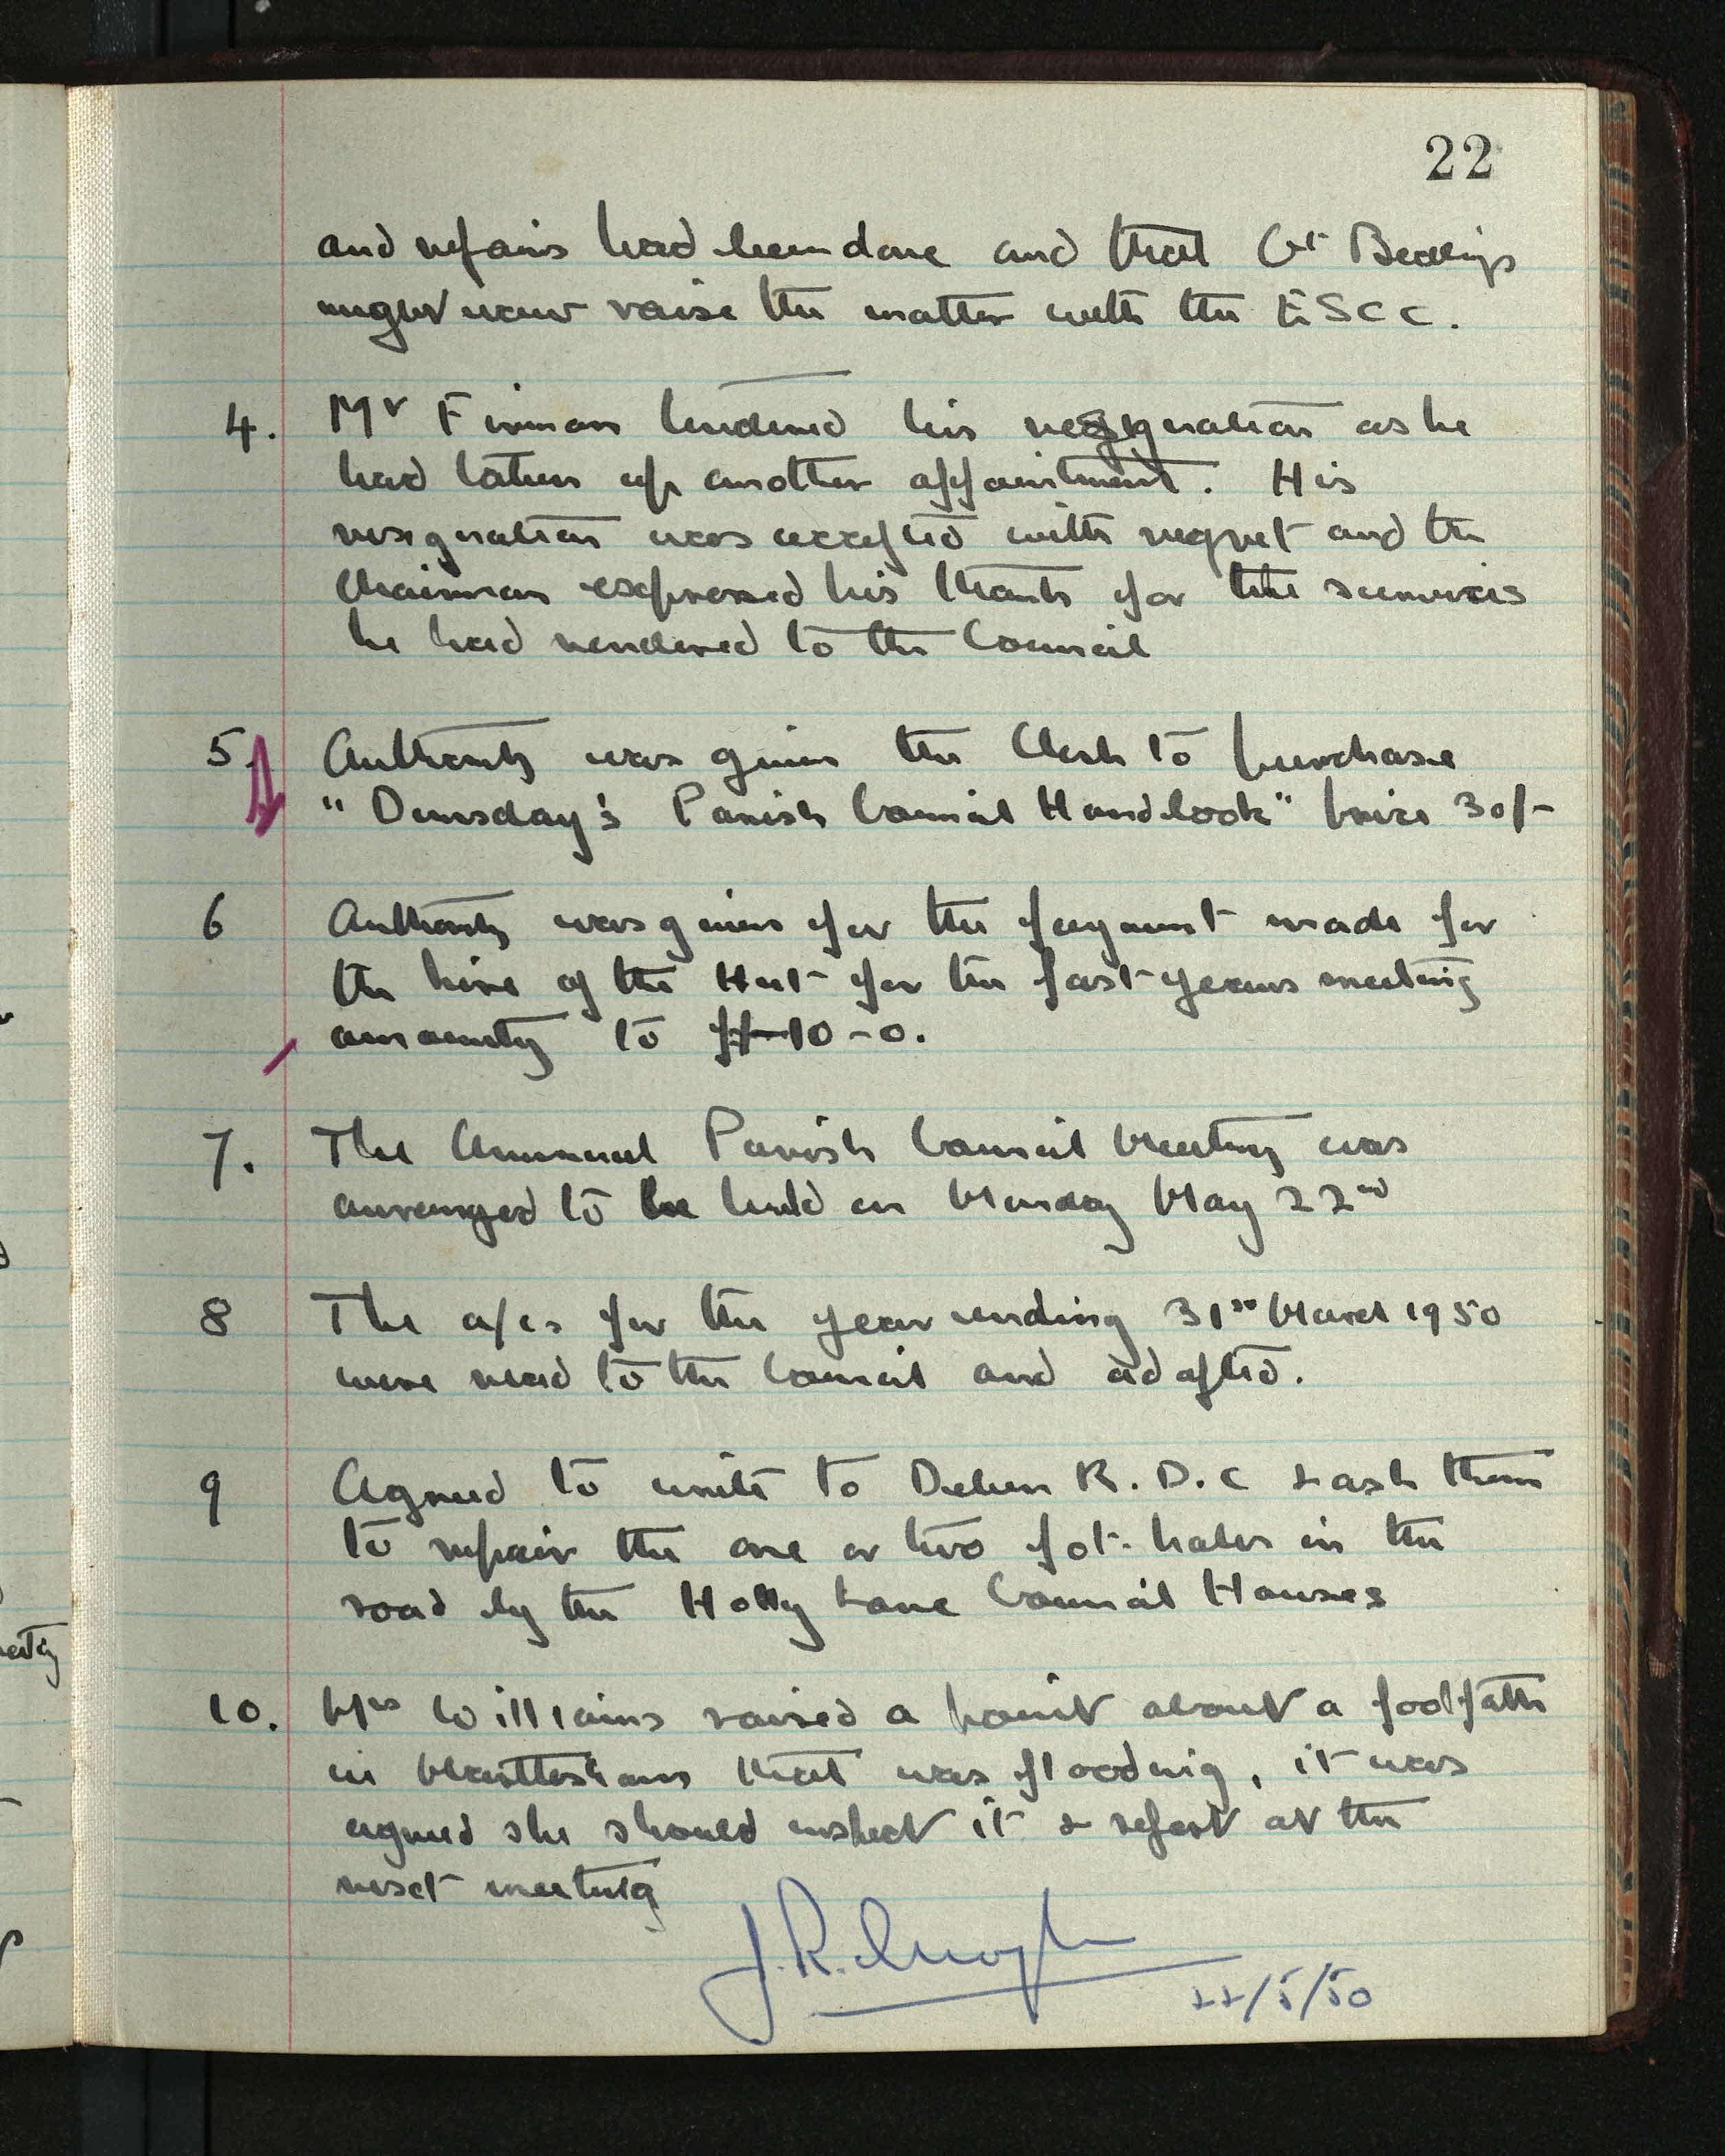 22
and repairs had been done and that Gt Bealings
might now raise the matter with the ESCC.
4. Mr Finman tendered his resignation as he
had taken up another appointment. His
resignation was accepted with regret and the
Chairman expressed his thanks for the services
he had rendered to the Council
5. Authority was given the Clerk to purchase
" Dumsday's Parish Council Handbook" price 30/-
6 Authority was given for the payment made for
the hire of the Hut for the past years meeting
amounting to 10-0.
7. The Annual Parish Council Meeting was
arranged to be held on Monday May 22nd
8 The a/cs for the year ending 31st March 1950
were read to the Council and adopted.
9 Agreed to write to Deben R.D.C & ask them
to repair the one or two pot-holes in the
road by the Holly Lane Council Houses
10. Mrs Williams raised a point about a footpath
in Martlesham that was flooding, it was
agreed she should inspect it & report at the
next meeting
J.R.
22/5/50